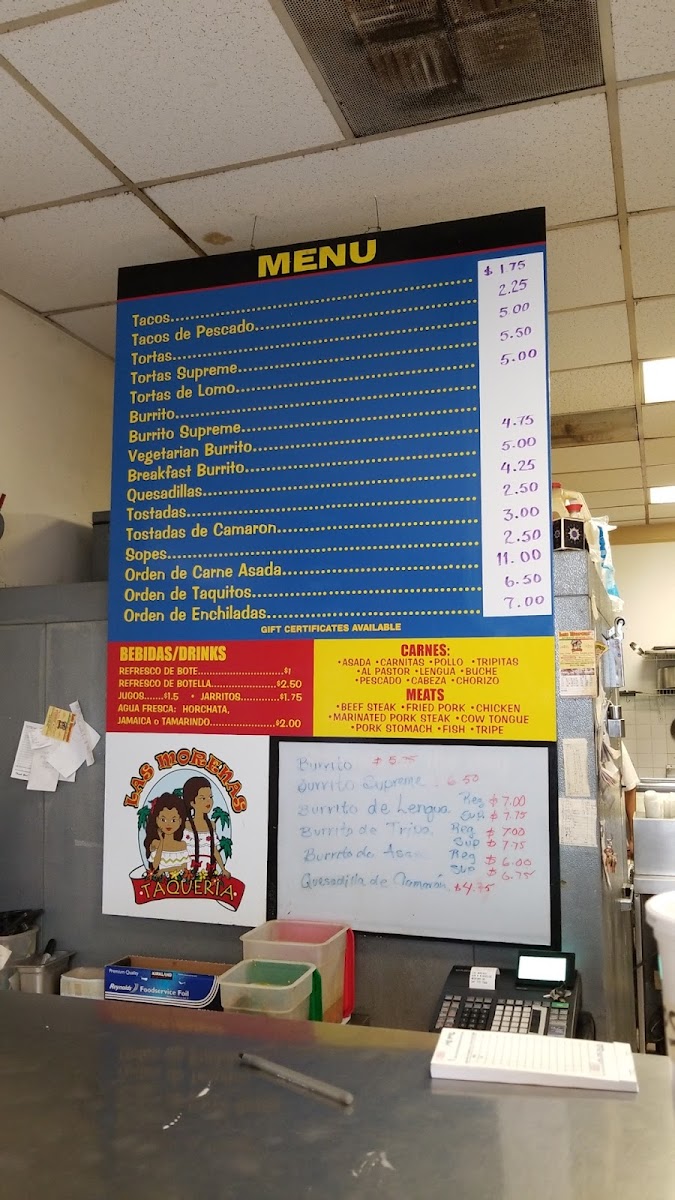 MENU
Tacos........ $1.75
Tacos de Pescado........ 2.25
Tortas........ 5.00
Tortas Supreme........ 5.50
Tortas de Lomo........ 5.00
Burrito........
Burrito Supreme........
Vegetarian Burrito........ 4.75
Breakfast Burrito........ 5.00
Quesadillas........ 4.25
Tostadas........ 2.50
Tostadas de Camaron........ 3.00
Sopes........ 2.50
Orden de Carne Asada........ 11.00
Orden de Taquitos........ 6.50
Orden de Enchiladas........ 7.00
GIFT CERTIFICATES AVAILABLE
BEBIDAS/DRINKS
REFRESCO DE BOTE........$1
REFRESCO DE BOTELLA........$2.50
JUGOS.......$1.5 • JARRITOS........$1.75
AGUA FRESCA: HORCHATA,
JAMAICA o TAMARINDO........$2.00
CARNES:
•ASADA •CARNITAS •POLLO •TRIPITAS
•AL PASTOR •LENGUA •BUCHE
•PESCADO •CABEZA •CHORIZO
MEATS
•BEEF STEAK •FRIED PORK •CHICKEN
•MARINATED PORK STEAK •COW TONGUE
•PORK STOMACH •FISH •TRIPE
LAS MORENAS
TAQUERIA
Burrito $5.75
Burrito Supreme 6.50
Burrito de Lengua Reg $7.00
Sup $7.75
Burrito de Tripa Reg $7.00
Sup $7.75
Burrito de Reg $6.00
Sup $6.75
Quesadilla de Camarón $4.75
Premium Quality
KIRKLAND
Reynolds Foodservice Foil